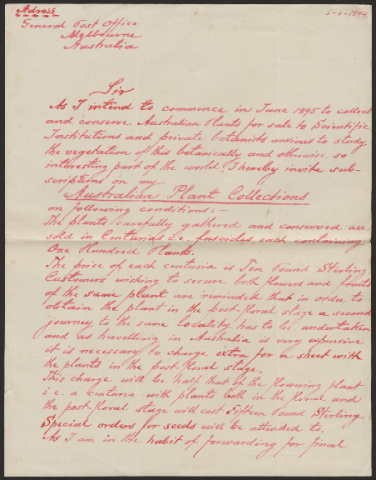 Adress
General Post Office
Melbourne
Australia
Sir
As I intend to commence in June 1895 to collect
and conserve Australian Plants for sale to Scientific
Institutions and private botanists anxious to study
the vegetation of this botanically and otherwise so
interesting part of the world I hereby invite sub-
scriptions on my
Australian Plant Collections
on following conditions:-
The plants carefully gathered and conserved are
sold in Centurias i.e. fascicles each containing
One Hundred Plants.
The price of each centuria is Ten Pound Stirling
Customers wishing to secure both flowers and fruits
of the same plant are reminded that in order to
obtain the plant in the post floral stage a second
journey to the same locality has to be undertaken
and as travelling in Australia is very expensive
it is necessary to charge extra for a sheet with
the plants in the post floral stage.
This charge will be half that of the flowering plant
i.e. a centuria with plants both in the floral and
the post floral stage will cost Fifteen Pound Stirling.
Special orders for seeds will be attended to.
As I am in the habit of forwarding for final